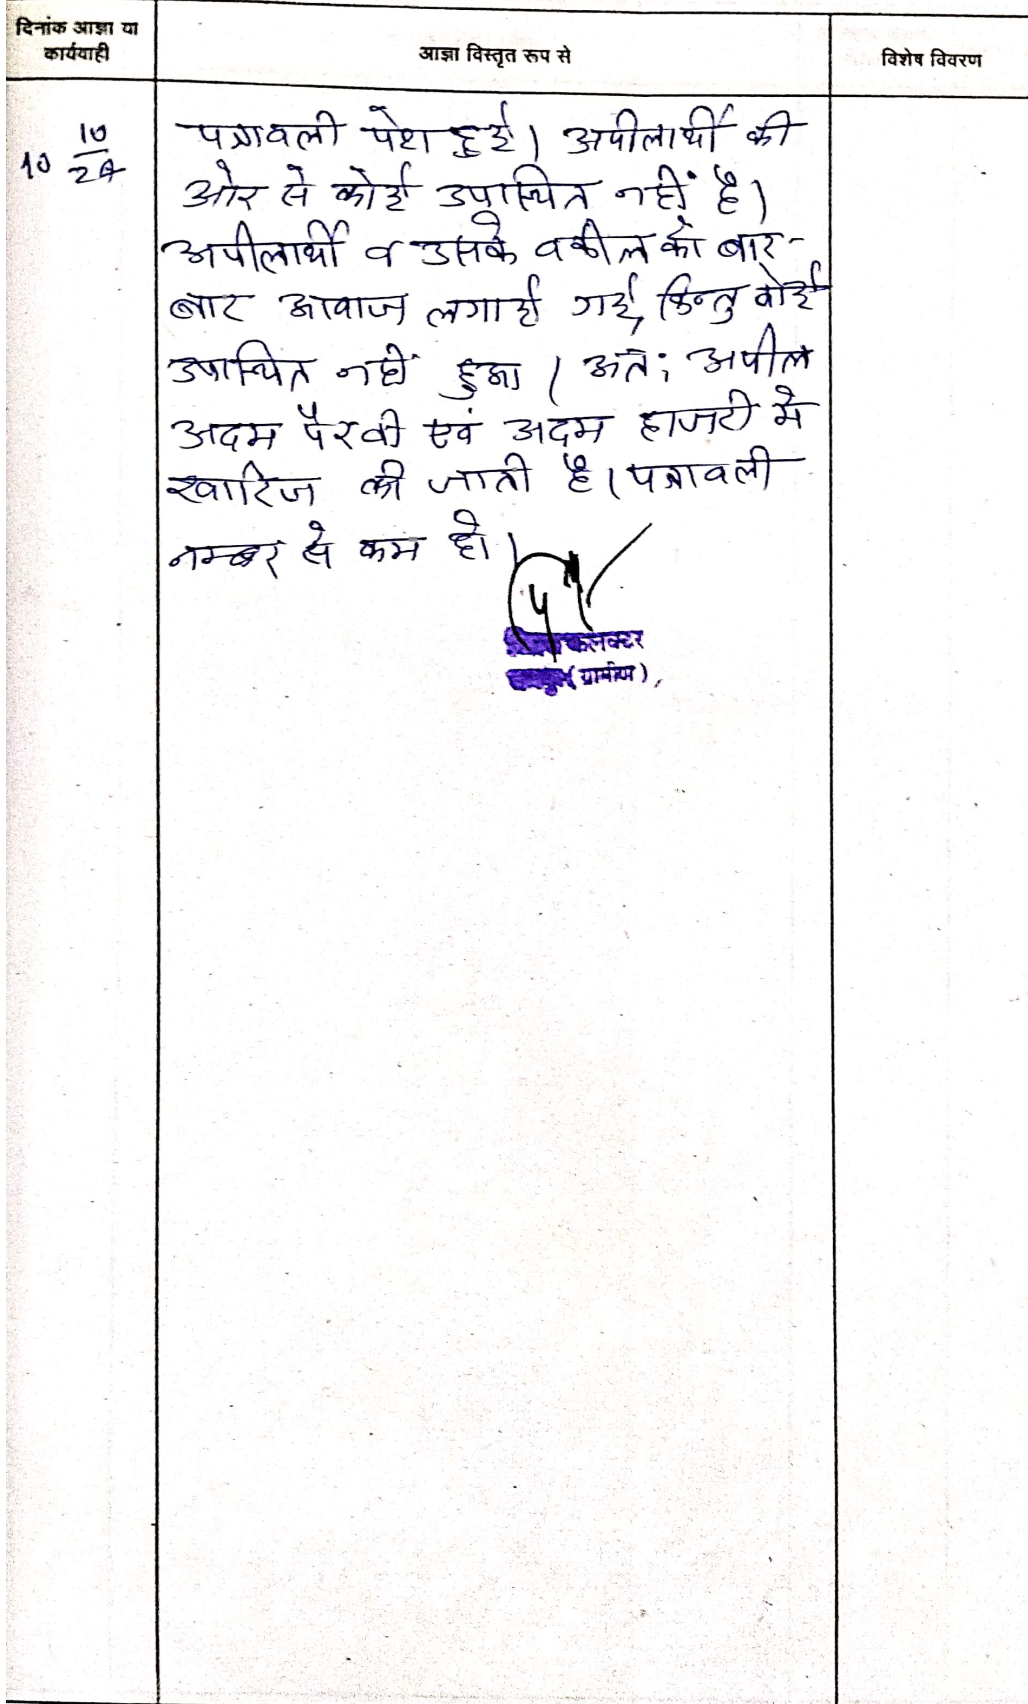 दिनांक आज्ञा या
कार्यवाही
आज्ञा विस्तृत रूप से
विशेष विवरण
10 10/24
पत्रावली पेश हुई। अपीलार्थी की
ओर से कोई उपस्थित नहीं है।
अपीलार्थी व उसके वकील को बार-
बार आवाज लगाई गई, किन्तु कोई
उपस्थित नहीं हुआ। अतः अपील
अदम पैरवी एवं अदम हाजरी में
खारिज की जाती है। पत्रावली
नम्बर से कम हो।
कलक्टर
(ग्रामीण),